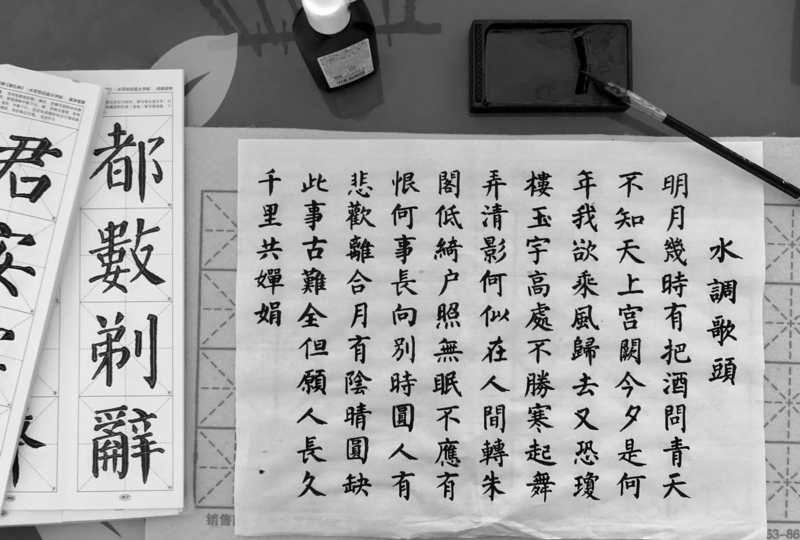 水調歌頭
明月幾時有把酒問青天
不知天上宮闕今夕是何
年我欲乘風歸去又恐瓊
樓玉宇高處不勝寒起舞
弄清影何似在人間轉朱
閣低綺户照無眠不應有
恨何事長向別時圓人有
悲歡離合月有陰晴圓缺
此事古難全但願人長久
千里共嬋娟
都數剃辭
君安
銷售
63-86